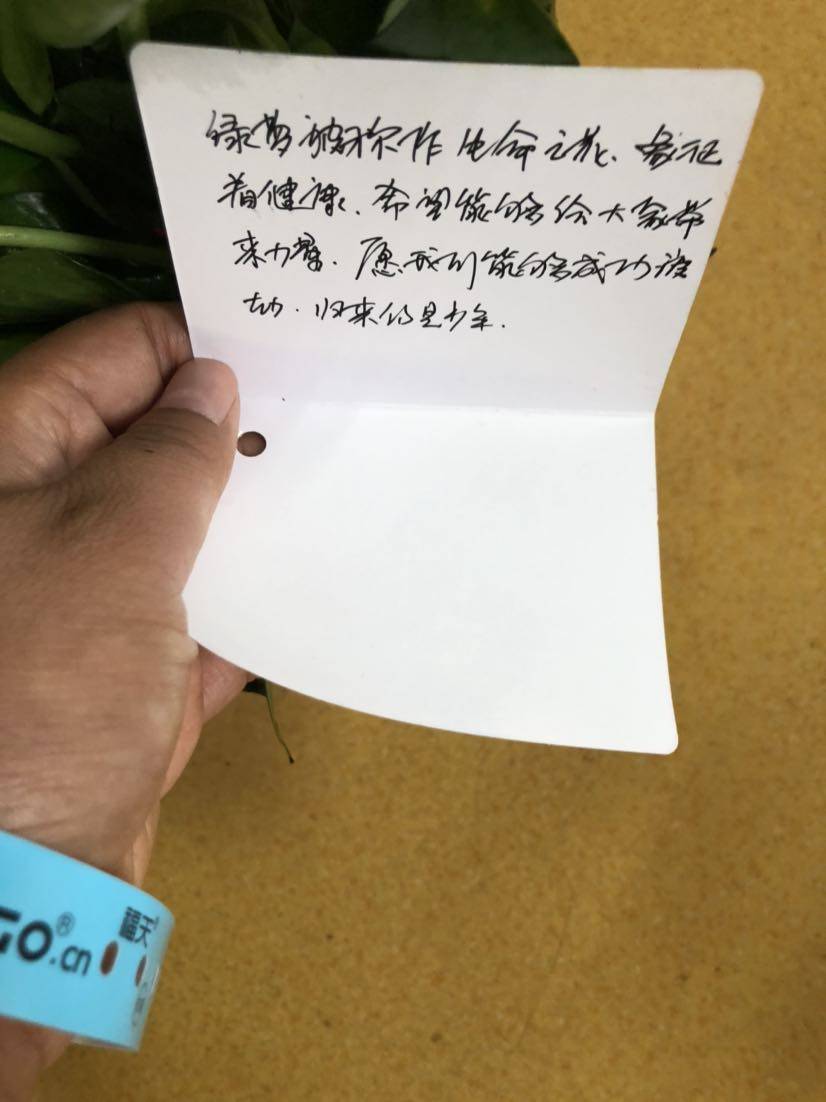 绿萝被称作生命之花、象征
着健康、希望能够给大家带
来力量．愿我们能够成功渡
劫．归来仍是少年．
GO®.cn
福天